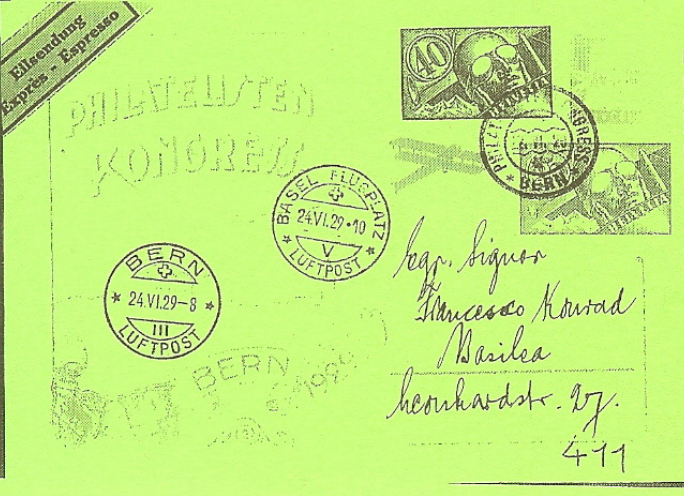 Eilsendung
Exprès - Espresso
40
HELVETIA
PHILATELISTEN
KONGRESS
BERN
BASEL FLUGPLATZ
24.VI.29•10
V
LUFTPOST
BERN
24.VI.29-8
III
LUFTPOST
HELVETIA
Egr. Signor
Francesco Konrad
Basilea
Leonhardstr. 27.
BERN
411